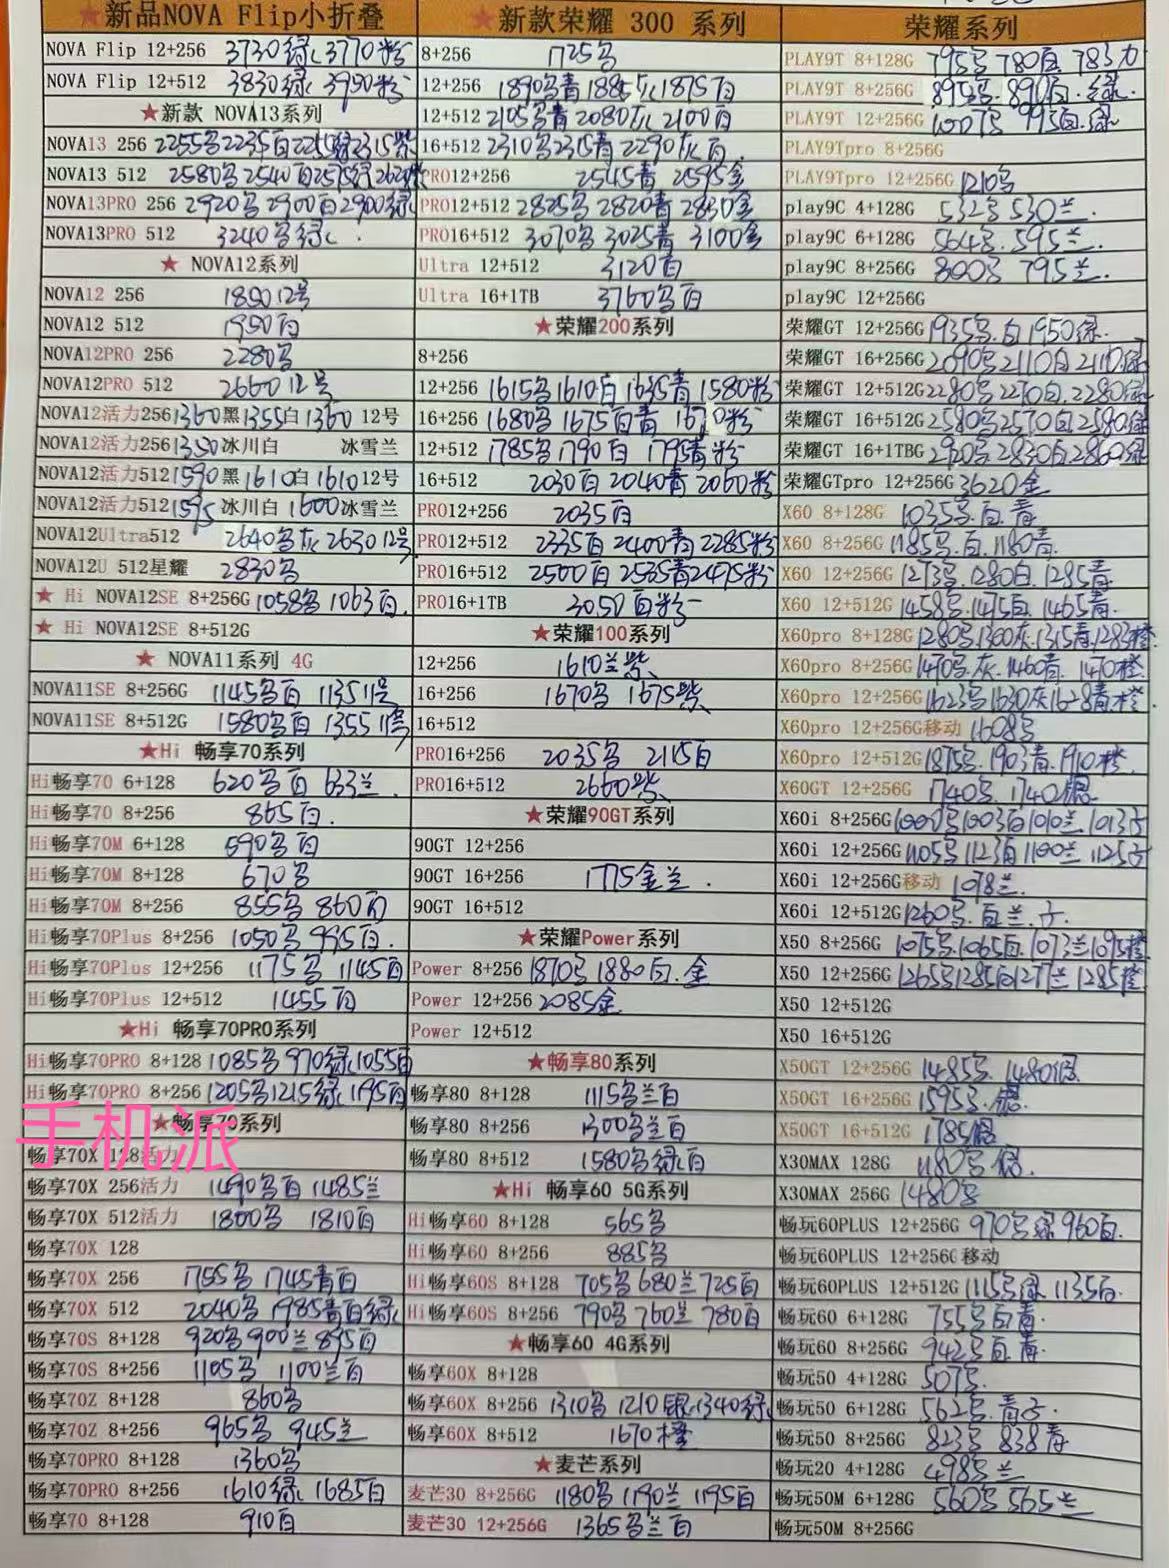 ★新品NOVA Flip小折叠
NOVA Flip 12+256 3730绿 3770粉
NOVA Flip 12+512 3830绿 3950粉
★新款 NOVA13系列
NOVA13 256 2255 2235白 2315紫
NOVA13 512 2580 2540白
NOVA13PRO 256 2920 2900白 2900绿
NOVA13PRO 512 3240 绿
★ NOVA12系列
NOVA12 256 1850 12号
NOVA12 512 白
NOVA12PRO 256 2280
NOVA12PRO 512 2660 12号
NOVA12活力256 1360黑 1355白 1360 12号
NOVA12活力256 1350冰川白 冰雪兰
NOVA12活力512 1590黑 1610白 1610 12号
NOVA12活力512 1595冰川白 1600冰雪兰
NOVA12Ultra512 2640 灰 2630 12号
NOVA12U 512星耀 2830
★ Hi NOVA12SE 8+256G 1058 1063白
★ Hi NOVA12SE 8+512G
★ NOVA11系列 4G
NOVA11SE 8+256G 1145 白 1135 11号
NOVA11SE 8+512G 1580 白 1355 11号
★Hi 畅享70系列
Hi畅享70 6+128 620 白 633兰
Hi畅享70 8+256 865白
Hi畅享70M 6+128 590 白
Hi畅享70M 8+128 670
Hi畅享70M 8+256 855 860白
Hi畅享70Plus 8+256 1050 白
Hi畅享70Plus 12+256 1175 1145白
Hi畅享70Plus 12+512 1455白
★Hi 畅享70PRO系列
Hi畅享70PRO 8+128 1085 970绿 1055白
Hi畅享70PRO 8+256 1205 1215绿 1195白
手机派
★畅享70系列
畅享70X 128活力
畅享70X 256活力 1490 白 1485兰
畅享70X 512活力 1800 1810白
畅享70X 128
畅享70X 256 1755 1745青白
畅享70X 512 2040 1985青白绿
畅享70S 8+128 920 900兰 895白
畅享70S 8+256 1105 1100兰白
畅享70Z 8+128 860
畅享70Z 8+256 965 945兰
畅享70PRO 8+128 1360
畅享70PRO 8+256 1610绿 1685白
畅享70 8+128 910白
★新款荣耀 300 系列
8+256 1725
12+256 1890 青 1885灰 1875白
12+512 2105 青 2080灰 2100白
16+512 2310 2315青 2290灰白
PRO12+256 2545青 2595金
PRO12+512 2825 2820青 2850金
PRO16+512 3070 3025青 3100金
Ultra 12+512 3120白
Ultra 16+1TB 3760 白
★荣耀200系列
8+256
12+256 1615 1610白 1635青 1580粉
16+256 1680 1675白青 粉
12+512 1785 1790白 1795青粉
16+512 2030白 2040青 2060粉
PRO12+256 2035白
PRO12+512 2335白 2400青 2285粉
PRO16+512 2500白 2535青 2475粉
PRO16+1TB 3050白粉
★荣耀100系列
12+256 1610兰紫
16+256 1670 1675紫
16+512
PRO16+256 2035 2115白
PRO16+512 2660紫
★荣耀90GT系列
90GT 12+256
90GT 16+256 1775金兰
90GT 16+512
★荣耀Power系列
Power 8+256 1870 1880白.金
Power 12+256 2085金
Power 12+512
★畅享80系列
畅享80 8+128 1115 兰白
畅享80 8+256 1300 兰白
畅享80 8+512 1580 绿白
★Hi 畅享60 5G系列
Hi畅享60 8+128 565
Hi畅享60 8+256 885
Hi畅享60S 8+128 705 680兰 725白
Hi畅享60S 8+256 790 760兰 780白
★畅享60 4G系列
畅享60X 8+128
畅享60X 8+256 1310 1210银 1340绿
畅享60X 8+512 1670橙
★麦芒系列
麦芒30 8+256G 1180 1190兰 1195白
麦芒30 12+256G 1365 兰白
荣耀系列
PLAY9T 8+128G 795 780白 785
PLAY9T 8+256G 895 890白.绿
PLAY9T 12+256G 1007 995白.绿
PLAY9Tpro 8+256G
PLAY9Tpro 12+256G 1210
play9C 4+128G 532 530兰
play9C 6+128G 564 595兰
play9C 8+256G 800 795兰
play9C 12+256G
荣耀GT 12+256G 1935 .白 1950绿
荣耀GT 16+256G 2090 2110白 2110绿
荣耀GT 12+512G 2280 2270白 2280绿
荣耀GT 16+512G 2580 2570白 2580绿
荣耀GT 16+1TBG 2920 2830白 2860绿
荣耀GTpro 12+256G 3620金
X60 8+128G 1035 .白.青
X60 8+256G 1185 .白.1180青
X60 12+256G 1273 .1280白.1285青
X60 12+512G 1458 .1475白.1465青
X60pro 8+128G 1280 1300灰 1315青 1283橙
X60pro 8+256G 1470 .灰.1460青 1470橙
X60pro 12+256G 1623 1630灰 1628青橙
X60pro 12+256G移动 1608
X60pro 12+512G 1875 .1903青.1910橙
X60GT 12+256G 1740 .1740银
X60i 8+256G 1000 1003白 1010兰 1013
X60i 12+256G 1105 1123白 1100兰 1125
X60i 12+256G移动 1098兰
X60i 12+512G 1260 .白兰
X50 8+256G 1075 1065白 1077兰 1095橙
X50 12+256G 1265 1285白 1271兰 1285橙
X50 12+512G
X50 16+512G
X50GT 12+256G 1485 1480银
X50GT 16+256G 1595 .银
X50GT 16+512G 1785银
X30MAX 128G 1180 银
X30MAX 256G 1480
畅玩60PLUS 12+256G 970 绿 960白
畅玩60PLUS 12+256G移动
畅玩60PLUS 12+512G 1115 绿 1135白
畅玩60 6+128G 755 白青
畅玩60 8+256G 942 白.青
畅玩50 4+128G 507
畅玩50 6+128G 562 .青
畅玩50 8+256G 823 838青
畅玩20 4+128G 498 兰
畅玩50M 6+128G 560 565兰
畅玩50M 8+256G